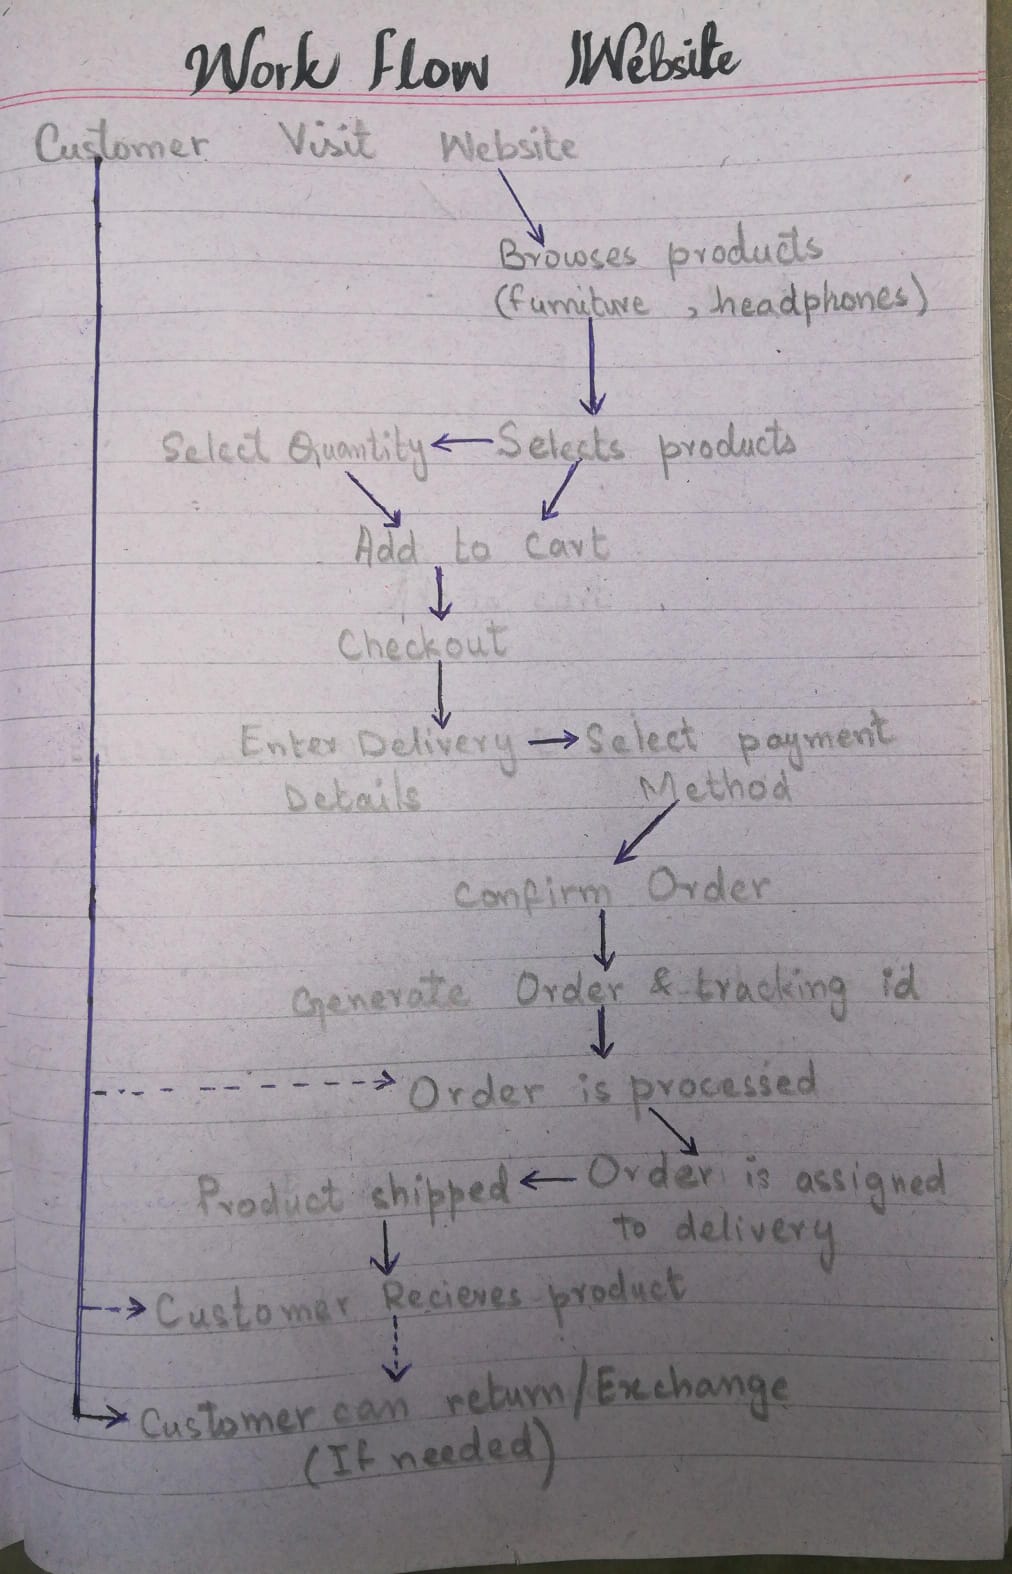 Work flow Website
Customer Visit Website
Browses products
(furniture , headphones)
Select Quantity Selects products
Add to Cart
Checkout
Enter Delivery Select payment
Details Method
Confirm Order
Generate Order & tracking id
Order is processed
Product shipped Order is assigned
to delivery
Customer Recieves product
Customer can return/Exchange
(If needed)